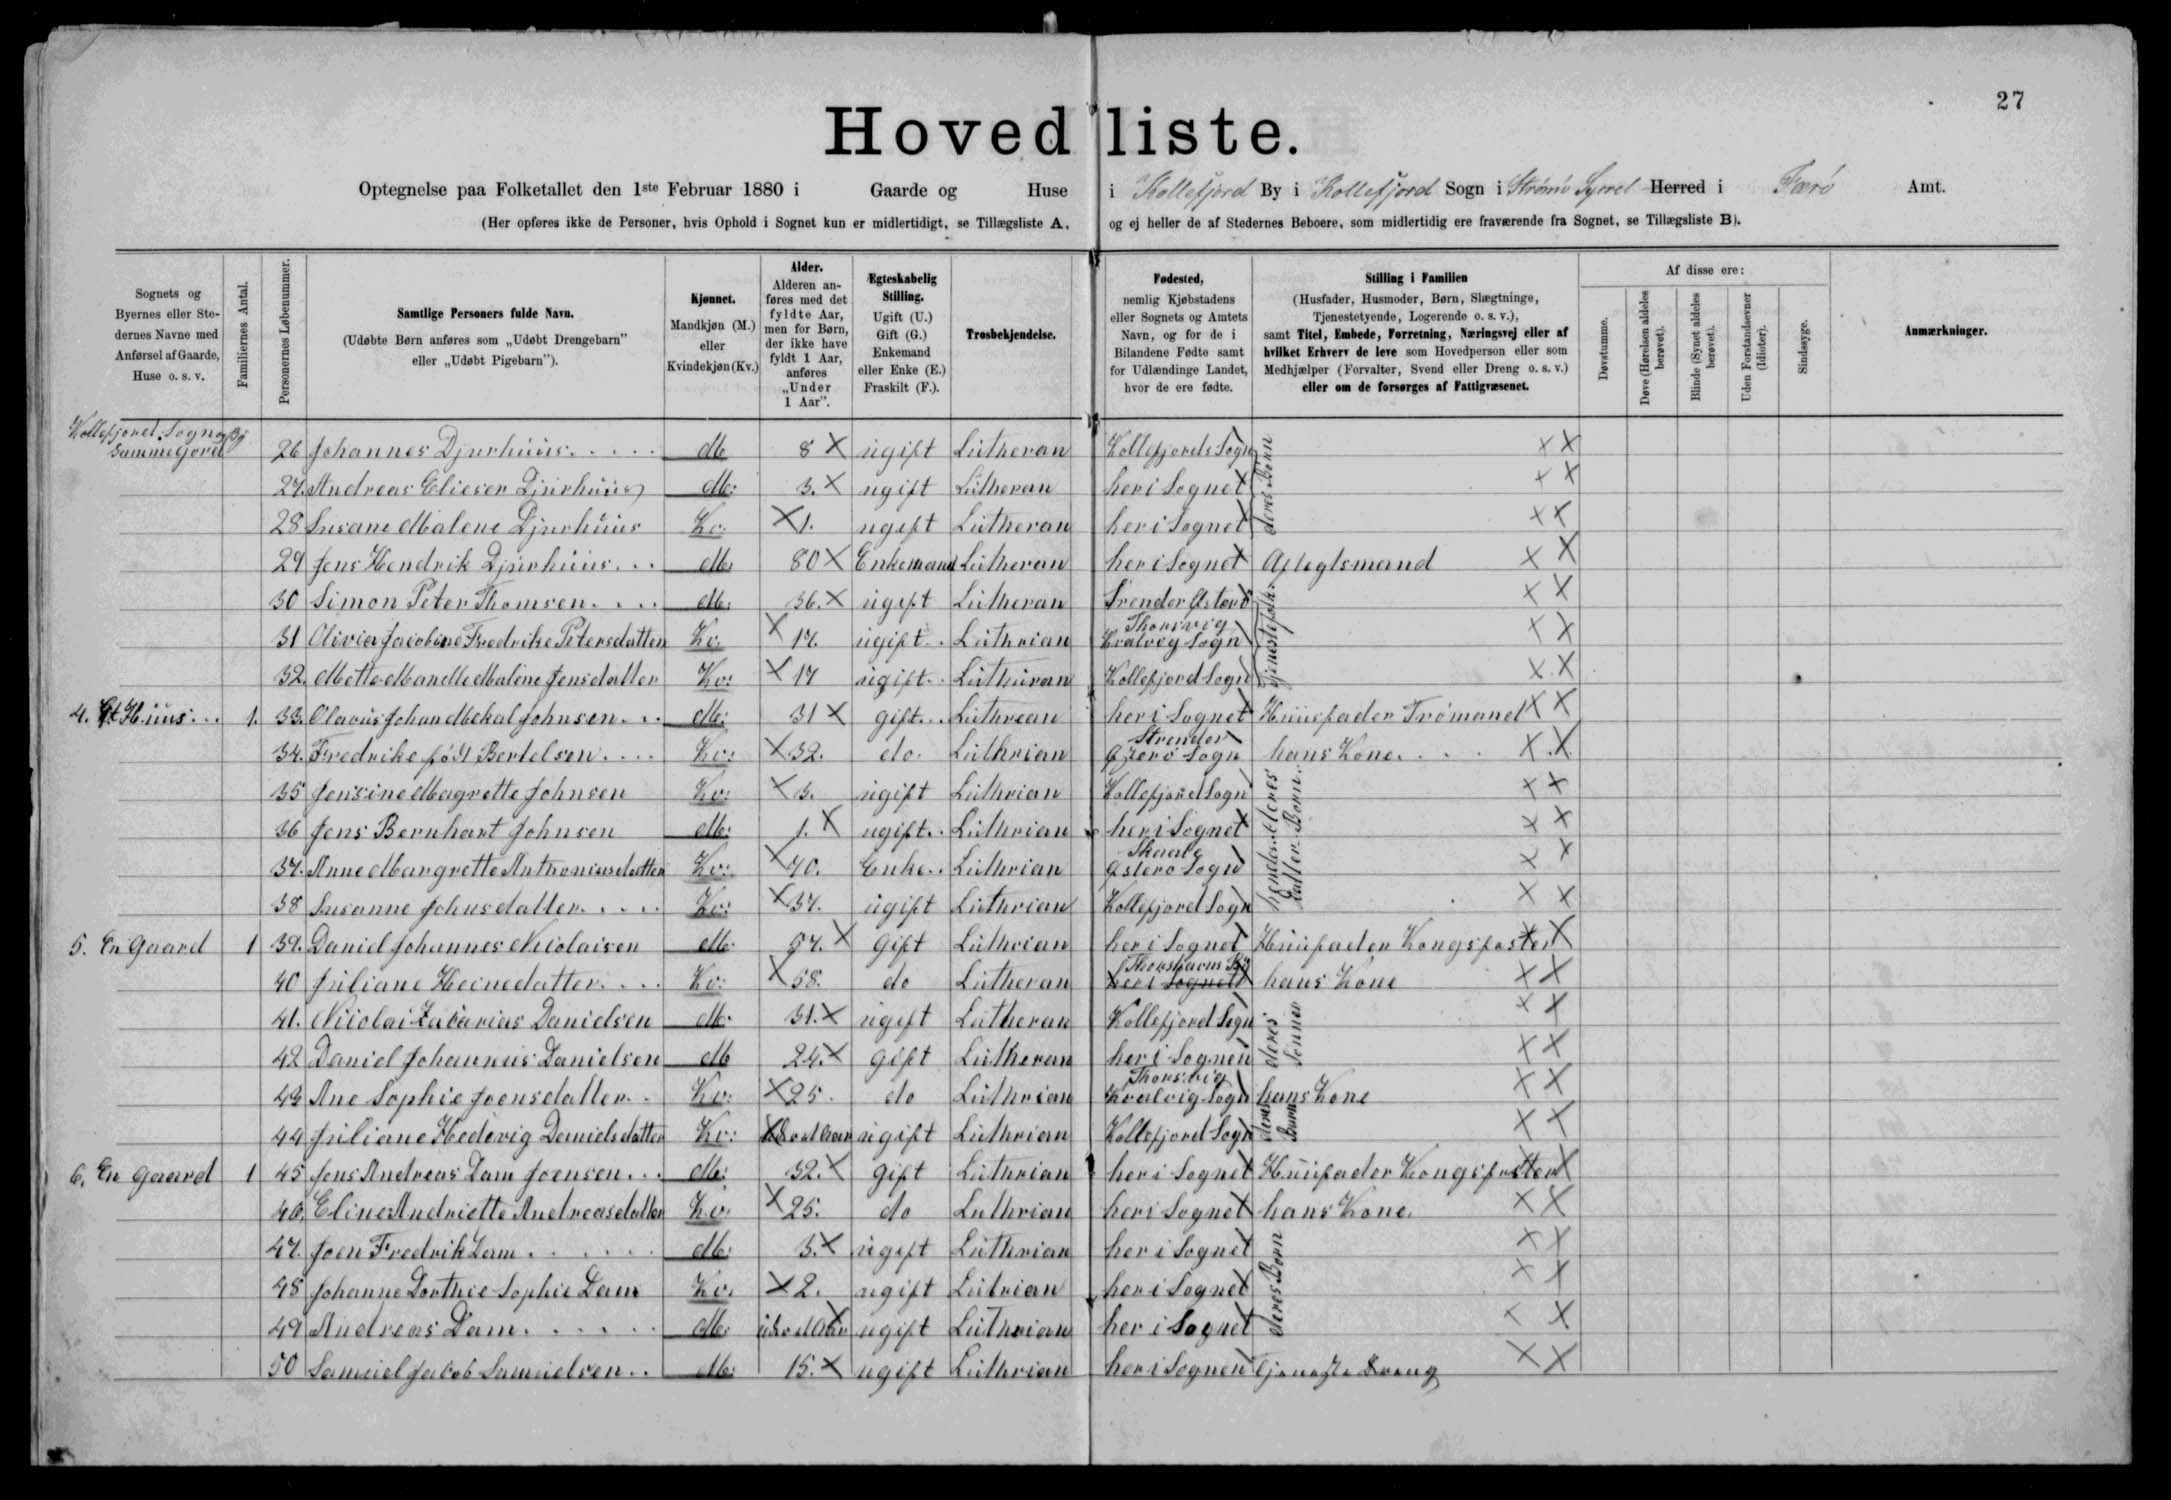 27
Hovedliste.
Optegnelse paa Folketallet den 1ste Februar 1880 i Gaarde og Huse i Kollefjord By i Kollefjord Sogn i Strømø Syssel Herred i Færø Amt.
(Her opføres ikke de Personer, hvis Ophold i Sognet kun er midlertidigt, se Tillægsliste A, og ej heller de af Stedernes Beboere, som midlertidig ere fraværende fra Sognet, se Tillægsliste B).
Sognets og Byernes eller Stedernes Navne med Anførsel af Gaarde, Huse o. s. v.
Familiernes Antal.
Personernes Løbenummer.
Samtlige Personers fulde Navn.
(Udøbte Børn anføres som „Udøbt Drengebarn" eller „Udøbt Pigebarn").
Kjønnet.
Mandkjøn (M.) eller Kvindekjøn (Kv.)
Alder.
Alderen anføres med det fyldte Aar, men for Børn, der ikke have fyldt 1 Aar, anføres „Under 1 Aar".
Egteskabelig Stilling.
Ugift (U.) Gift (G.) Enkemand eller Enke (E.) Fraskilt (F.).
Trosbekjendelse.
Fødested,
nemlig Kjøbstadens eller Sognets og Amtets Navn, og for de i Bilandene Fødte samt for Udlændinge Landet, hvor de ere fødte.
Stilling i Familien
(Husfader, Husmoder, Børn, Slægtninge, Tjenestetyende, Logerende o. s. v.),
samt Titel, Embede, Forretning, Næringsvej eller af hvilket Erhverv de leve som Hovedperson eller som Medhjælper (Forvalter, Svend eller Dreng o. s. v.) eller om de forsørges af Fattigvæsenet.
Af disse ere:
Døvstumme.
Døve (Hørelsen aldeles berøvet).
Blinde (Synet aldeles berøvet).
Uden Forstandsevner (Idioter).
Sindssyge.
Anmærkninger.
Kollefjord Sogn og By
26 Johannes Djurhuus M 8 X ugift Lutheran Kollefjords Sogn deres Børn X X
27. Andreas Elieser Djurhuus M: 3. X ugift Lutheran her i Sognet X X
28 Susane Malene Djurhuus Kv: X 1. ugift Lutheran her i Sognet X X
29 Jens Hendrik Djurhuus M: 80 X Enkemand Lutheran her i Sognet Aftegtsmand X X
30 Simon Peter Thomsen M: 36. X ugift Lutheran Strender Østerø Tjenestefolk X X
31 Olivia Jacobine Fredrike Petersdatter Kv. X 17. ugift Luthrian Thorsvig Kvalvig Sogn X X
32. Mette Malene Jensdatter Kv: X 17 ugift Lutheran Kollefjord Sogn X X
4. Et Huus 1. 33. Olavus Johan Mekal Johnsen M: 31 X gift Luthrean her i Sognet Huusfader Trømand X X
34. Fredrike föd Bertelsen Kv: X 32. do. Luthrian Strender Østerø Sogn hans Kone X X
35 Jensine Magrette Johnsen Kv: X 3. ugift Luthrian Kollefjord Sogn deres Børn X X
36 Jens Bernhart Johnsen M: 1. X ugift Luthrian her i Sognet X X
37. Anne Margrette Anthoniusdatter Kv: X 70. Enke Luthrian Skaale Østerø Sogn X X
38 Susanne Johnsdatter Kv: X 37. ugift Luthrian Kollefjord Sogn hendes Datter X X
5. En Gaard 1 39. Daniel Johannes Nicolaisen M: 57. X gift Luthrian her i Sognet Huusfader Kongsfæster X
40 Juliane Heinedatter Kv: X 58. do Lutheran Thorshavns her i Sognet hans Kone X X
41. Nicolai Zacarias Danielsen M: 31. X ugift Lutheran Kollefjord Sogn deres Sønner X X
42 Daniel Johannus Danielsen M 24. X gift Lutheran her i Sognen X X
43 Ane Sophie Joensdatter Kv: X 25. do Luthrian Thorsvig Kvalvig Sogn hans Kone X X
44 Juliane Hedevig Danielsdatter Kv: ugift Luthrian Kollefjord Sogn deres Barn X X
6. En Gaard 1 45 Jens Andreas Dam Joensen M: 32. X gift Luthrian her i Sognet Huusfader Kongsfæster X
46. Eline Andriette Andreasdatter Kv: X 25. do Luthrian her i Sognet hans Kone. X X
47. Joen Fredrik Dam M: 3. X ugift Luthrian her i Sognet deres Børn X X
48 Johanne Dorthie Sophie Dam Kv. X 2. ugift Lutrian her i Sognet X X
49 Andreas Dam M: ugift Luthrian her i Sognet X X
50 Samuel Jacob Samuelsen M: 15. X ugift Luthrian her i Sognen Tjeneste Dreng X X